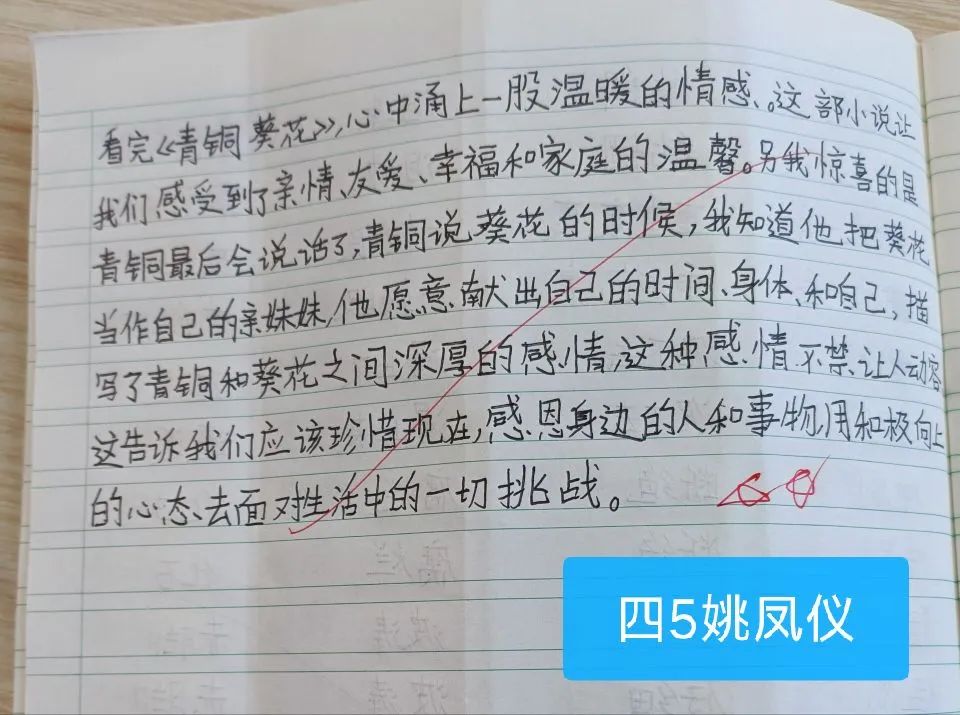 看完《青铜葵花》,心中涌上一股温暖的情感、。这部小说让
我们感受到了亲情、友爱、幸福和家庭的温馨。另我惊喜的是
青铜最后会说话了,青铜说葵花的时候,我知道他把葵花
当作自己的亲妹妹,他愿意献出自己的时间、身体、和自己,描
写了青铜和葵花之间深厚的感情,这种感情不禁让人动容
这告诉我们应该珍惜现在,感恩身边的人和事物,用和极向上
的心态、去面对生活中的一切挑战。
四5姚凤仪